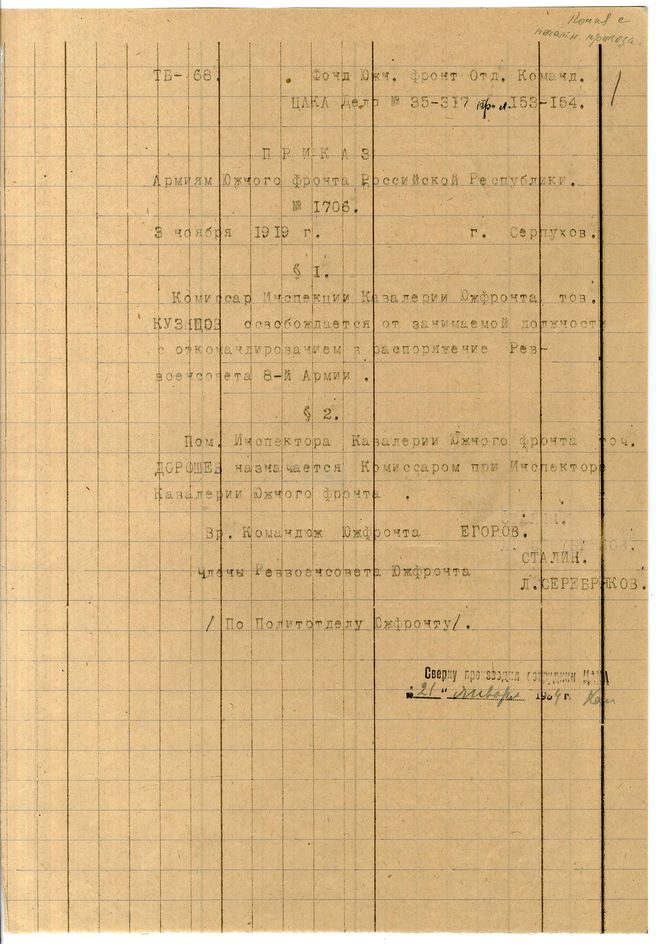 Копия с
печатн. приказа.
ТБ-68. Фонд Южн. фронт Отд. Команд.
ЦАКА Дело № 35-317 пр. л. 153-154.
ПРИКАЗ
Армиям Южного фронта Российской Республики.
№ 1706.
3 ноября 1919 г. г. Серпухов.
§ I.
Комиссар Инспекции Кавалерии Южфронта тов.
КУЗНЦОВ освобождается от занимаемой должности
с откомандированием в распоряжение Рев-
военсовета 8-й Армии .
§ 2.
Пом. Инспектора Кавалерии Южного фронта точ.
ДОРОШЕВ назначается Комиссаром при Инспекторе
Кавалерии Южного фронта .
Вр. Командюж Южфронта ЕГОРОВ.
СТАЛИН.
Члены Реввоенсовета Южфронта
Л.СЕРЕБРЯКОВ.
/ По Политотделу Южфронту/.
Сверку производил сотрудник ЦАКА
"21" января 1934 г.